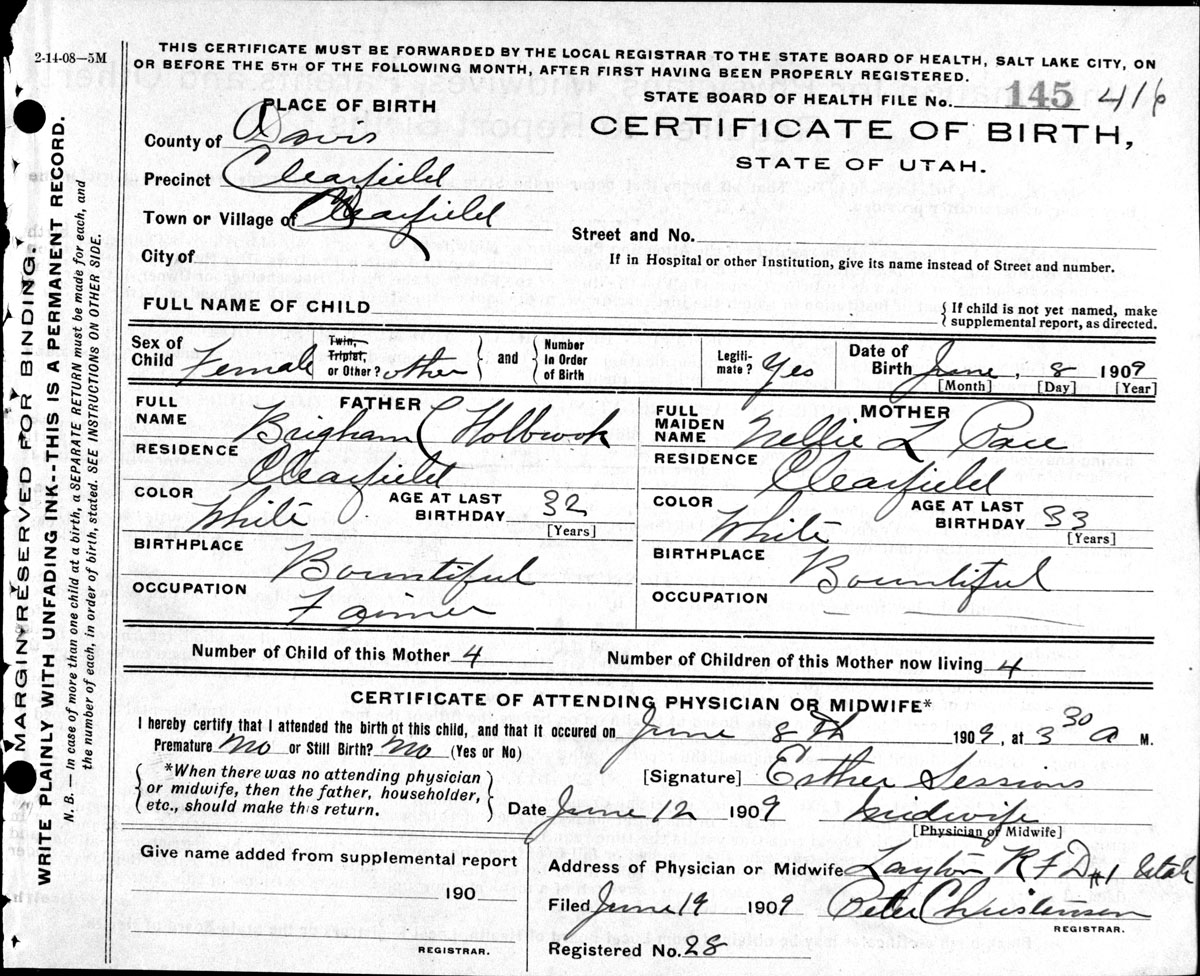 2-14-08—5M
THIS CERTIFICATE MUST BE FORWARDED BY THE LOCAL REGISTRAR TO THE STATE BOARD OF HEALTH, SALT LAKE CITY, ON
OR BEFORE THE 5TH OF THE FOLLOWING MONTH, AFTER FIRST HAVING BEEN PROPERLY REGISTERED.
PLACE OF BIRTH
STATE BOARD OF HEALTH FILE No. 145 416
County of Davis
CERTIFICATE OF BIRTH,
STATE OF UTAH.
Precinct Clearfield
Town or Village of Clearfield
Street and No.
City of
If in Hospital or other Institution, give its name instead of Street and number.
FULL NAME OF CHILD
{ If child is not yet named, make
{ supplemental report, as directed.
Sex of Child Female
Twin, Triplet, or Other? other } and { Number In Order of Birth
Legiti-mate? Yes
Date of Birth June, 8 1909
[Month] [Day] [Year]
FATHER
FULL NAME Brigham C Holbrook
RESIDENCE Clearfield
COLOR White AGE AT LAST BIRTHDAY 32
[Years]
BIRTHPLACE Bountiful
OCCUPATION Farmer
MOTHER
FULL MAIDEN NAME Nellie L Pace
RESIDENCE Clearfield
COLOR White AGE AT LAST BIRTHDAY 33
[Years]
BIRTHPLACE Bountiful
OCCUPATION
Number of Child of this Mother 4 Number of Children of this Mother now living 4
CERTIFICATE OF ATTENDING PHYSICIAN OR MIDWIFE*
I hereby certify that I attended the birth of this child, and that it occured on June 8th 1909, at 3 30 a M.
Premature No or Still Birth? No (Yes or No)
{ *When there was no attending physician
or midwife, then the father, householder,
etc., should make this return. }
[Signature] Esther Sessions
Date June 12 1909 Midwife
[Physician or Midwife]
Give name added from supplemental report
190
REGISTRAR.
Address of Physician or Midwife Layton R F D #1 Utah
Filed June 19 1909 Peter Christensen
REGISTRAR.
Registered No. 28
MARGIN RESERVED FOR BINDING.
WRITE PLAINLY WITH UNFADING INK--THIS IS A PERMANENT RECORD.
N. B.— In case of more than one child at a birth, a SEPARATE RETURN must be made for each, and
the number of each, in order of birth, stated. SEE INSTRUCTIONS ON OTHER SIDE.